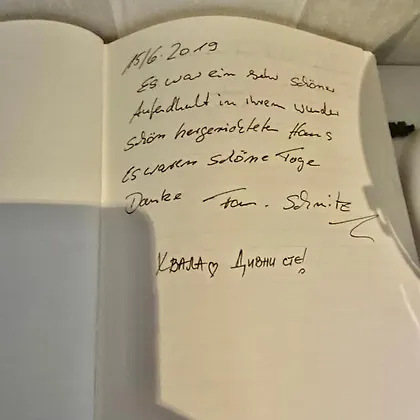 15/6.2019
Es war ein sehr schöner
Aufendhalt in ihrem wunder
schön hergerichteten Haus
Es waren schöne Tage
Danke Fam. Schmitz
ХВАЛА♡ ДИВНИ СТЕ!